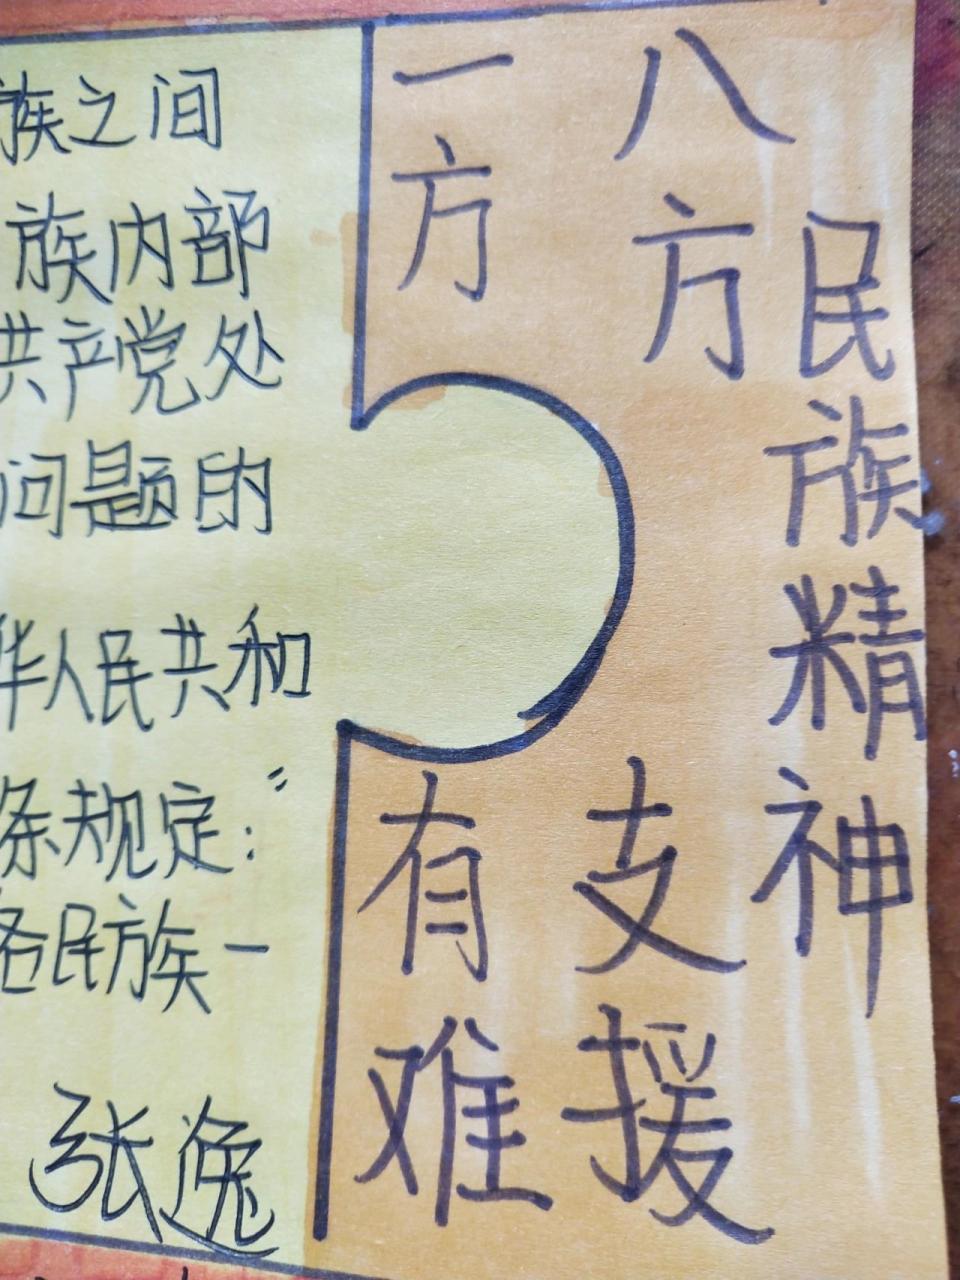 族之间
族内部
共产党处
问题的
华人民共和
条规定:“
各民族一
张逸
一方有难
八方支援
民族精神